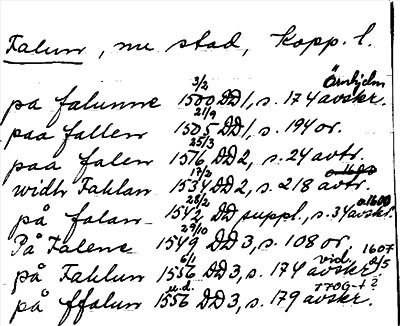 Falun, nu stad, Kopp. l.
på falunne 3/2 1500 DD1, s. 174 avskr. Örnhjelm
paa fallen 21/9 1505 DD1, s. 194 or.
paa falen 25/3 1516 DD2, s. 24 avtr.
widh Fahlan 17/2 1534 DD2, s. 218 avtr. o. 1600
på falan 28/2 1542 DD suppl., s. 34 avskr. o. 1600
På Falene 29/10 1549 DD3, s. 108 or.
på Fahlun 6/1 1556 DD3, s. 174 avskr. vid. 1607 2/5
på ffalun u.d. 1556 DD3, s. 179 avskr.